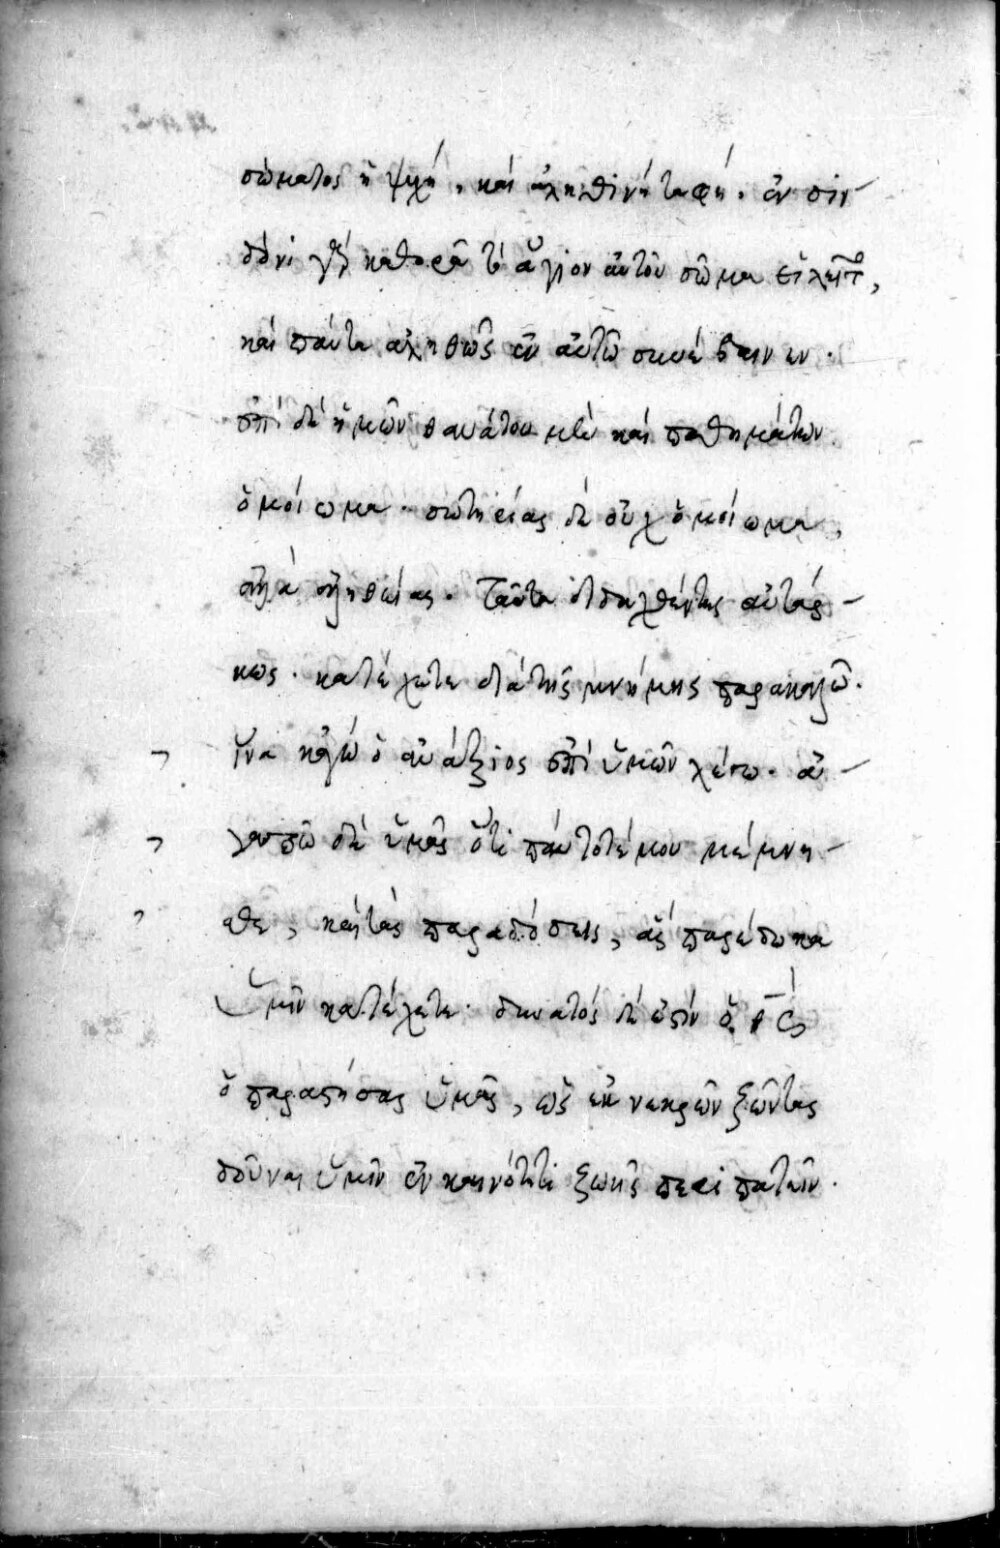 σώματος ἡ ψυχή, καὶ ἀληθινὴ ταφή. ἐν σιν-
δόνι γὰρ καθαρᾷ τὸ ἅγιον αὐτοῦ σῶμα εἴλητο,
καὶ πάντα ἀληθῶς ἐν αὐτῷ συνέβαινεν.
ἐπὶ δὲ ἡμῶν θανάτου μὲν καὶ παθημάτων
ὁμοίωμα. σωτηρίας δὲ οὐχ ὁμοίωμα,
ἀλλὰ ἀλήθεια. Ταῦτα διδαχθέντες αὐτάρ-
κως. κατέχετε διὰ τῆς μνήμης παρακαλῶ.
ἵνα κἀγὼ ὁ ἀνάξιος ἐπὶ ὑμῶν λέγω. ἀ-
γαπῶ δὲ ὑμᾶς ὅτι πάντοτέ μου μέμνη-
σθε, καὶ τὰς παραδόσεις, ἃς παρέδωκα
ὑμῖν κατέχετε. δυνατὸς δέ ἐστιν ὁ θς
ὁ παραστήσας ὑμᾶς, ὡς ἐκ νεκρῶν ζῶντας
δοῦναι ὑμῖν ἐν καινότητι ζωῆς περιπατεῖν.